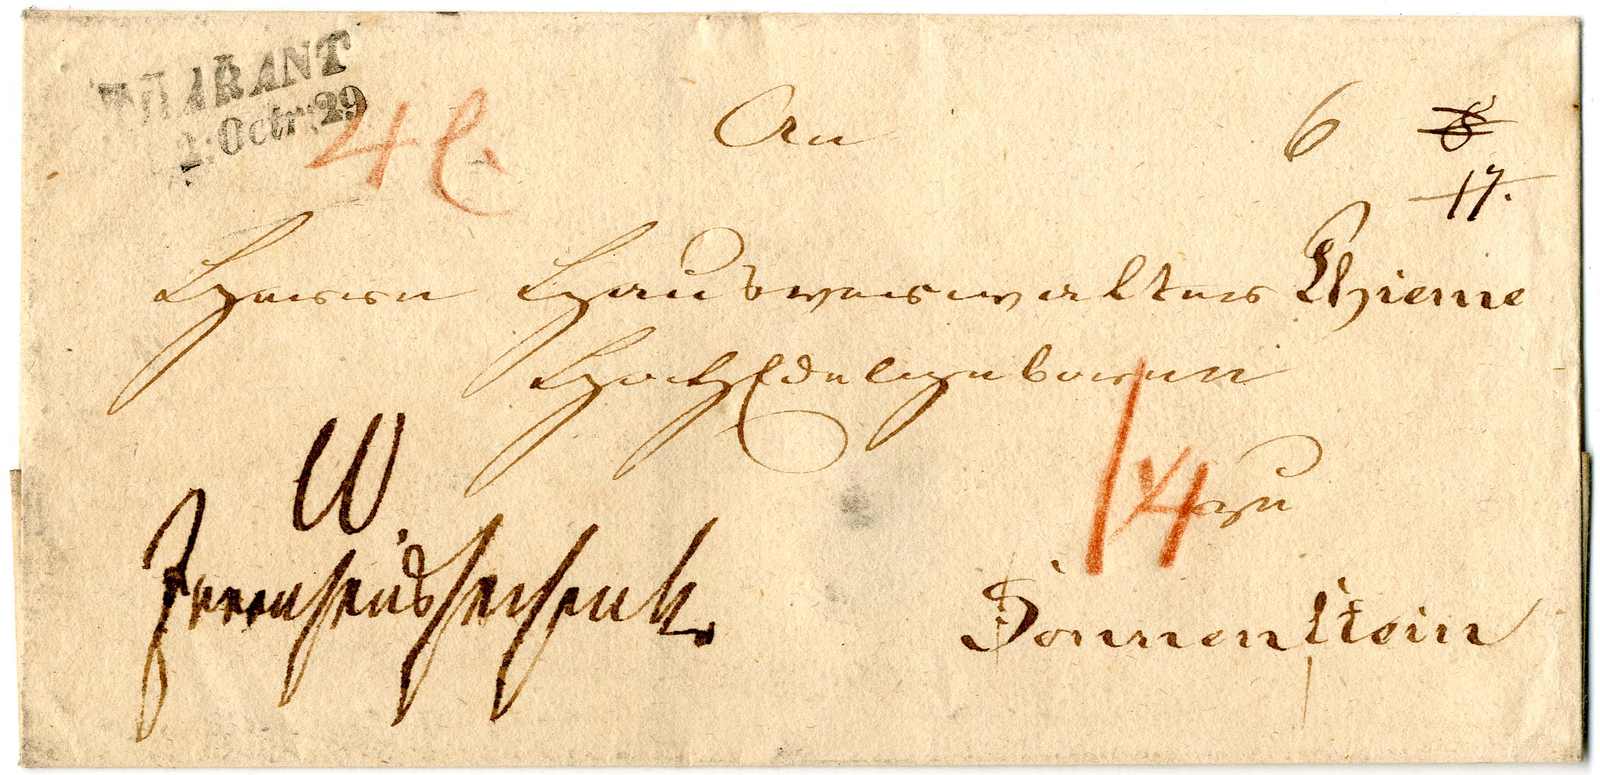 THARANT
2. Octr: 29
4 l.
An
6
8
17.
Herrn Hausverwalter Thieme
HochEdelgeboren
1/4
zu
W.
Sonnenstein